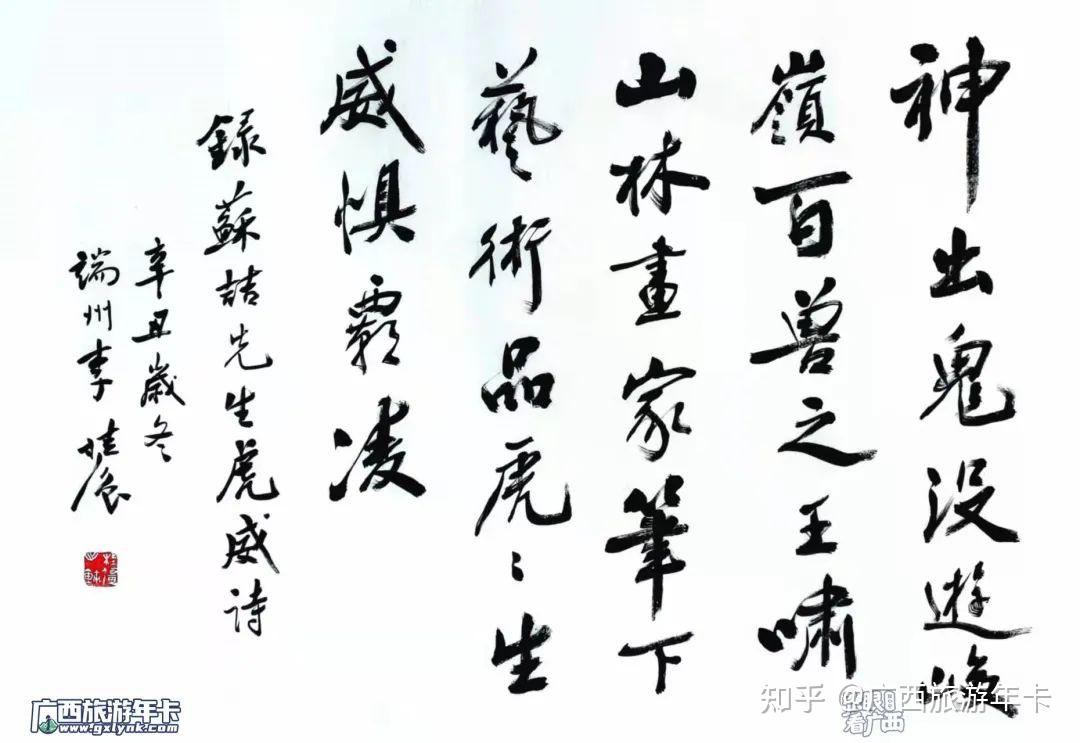 神出鬼没遊峻
嶺百兽之王嘯
山林畫家筆下
藝術品虎〻生
威惧霸凌
録蘇喆先生虎威詩
辛丑歲冬
端州李
广西旅游年卡
www.gxlynk.com
知乎 @广西旅游年卡
看广西